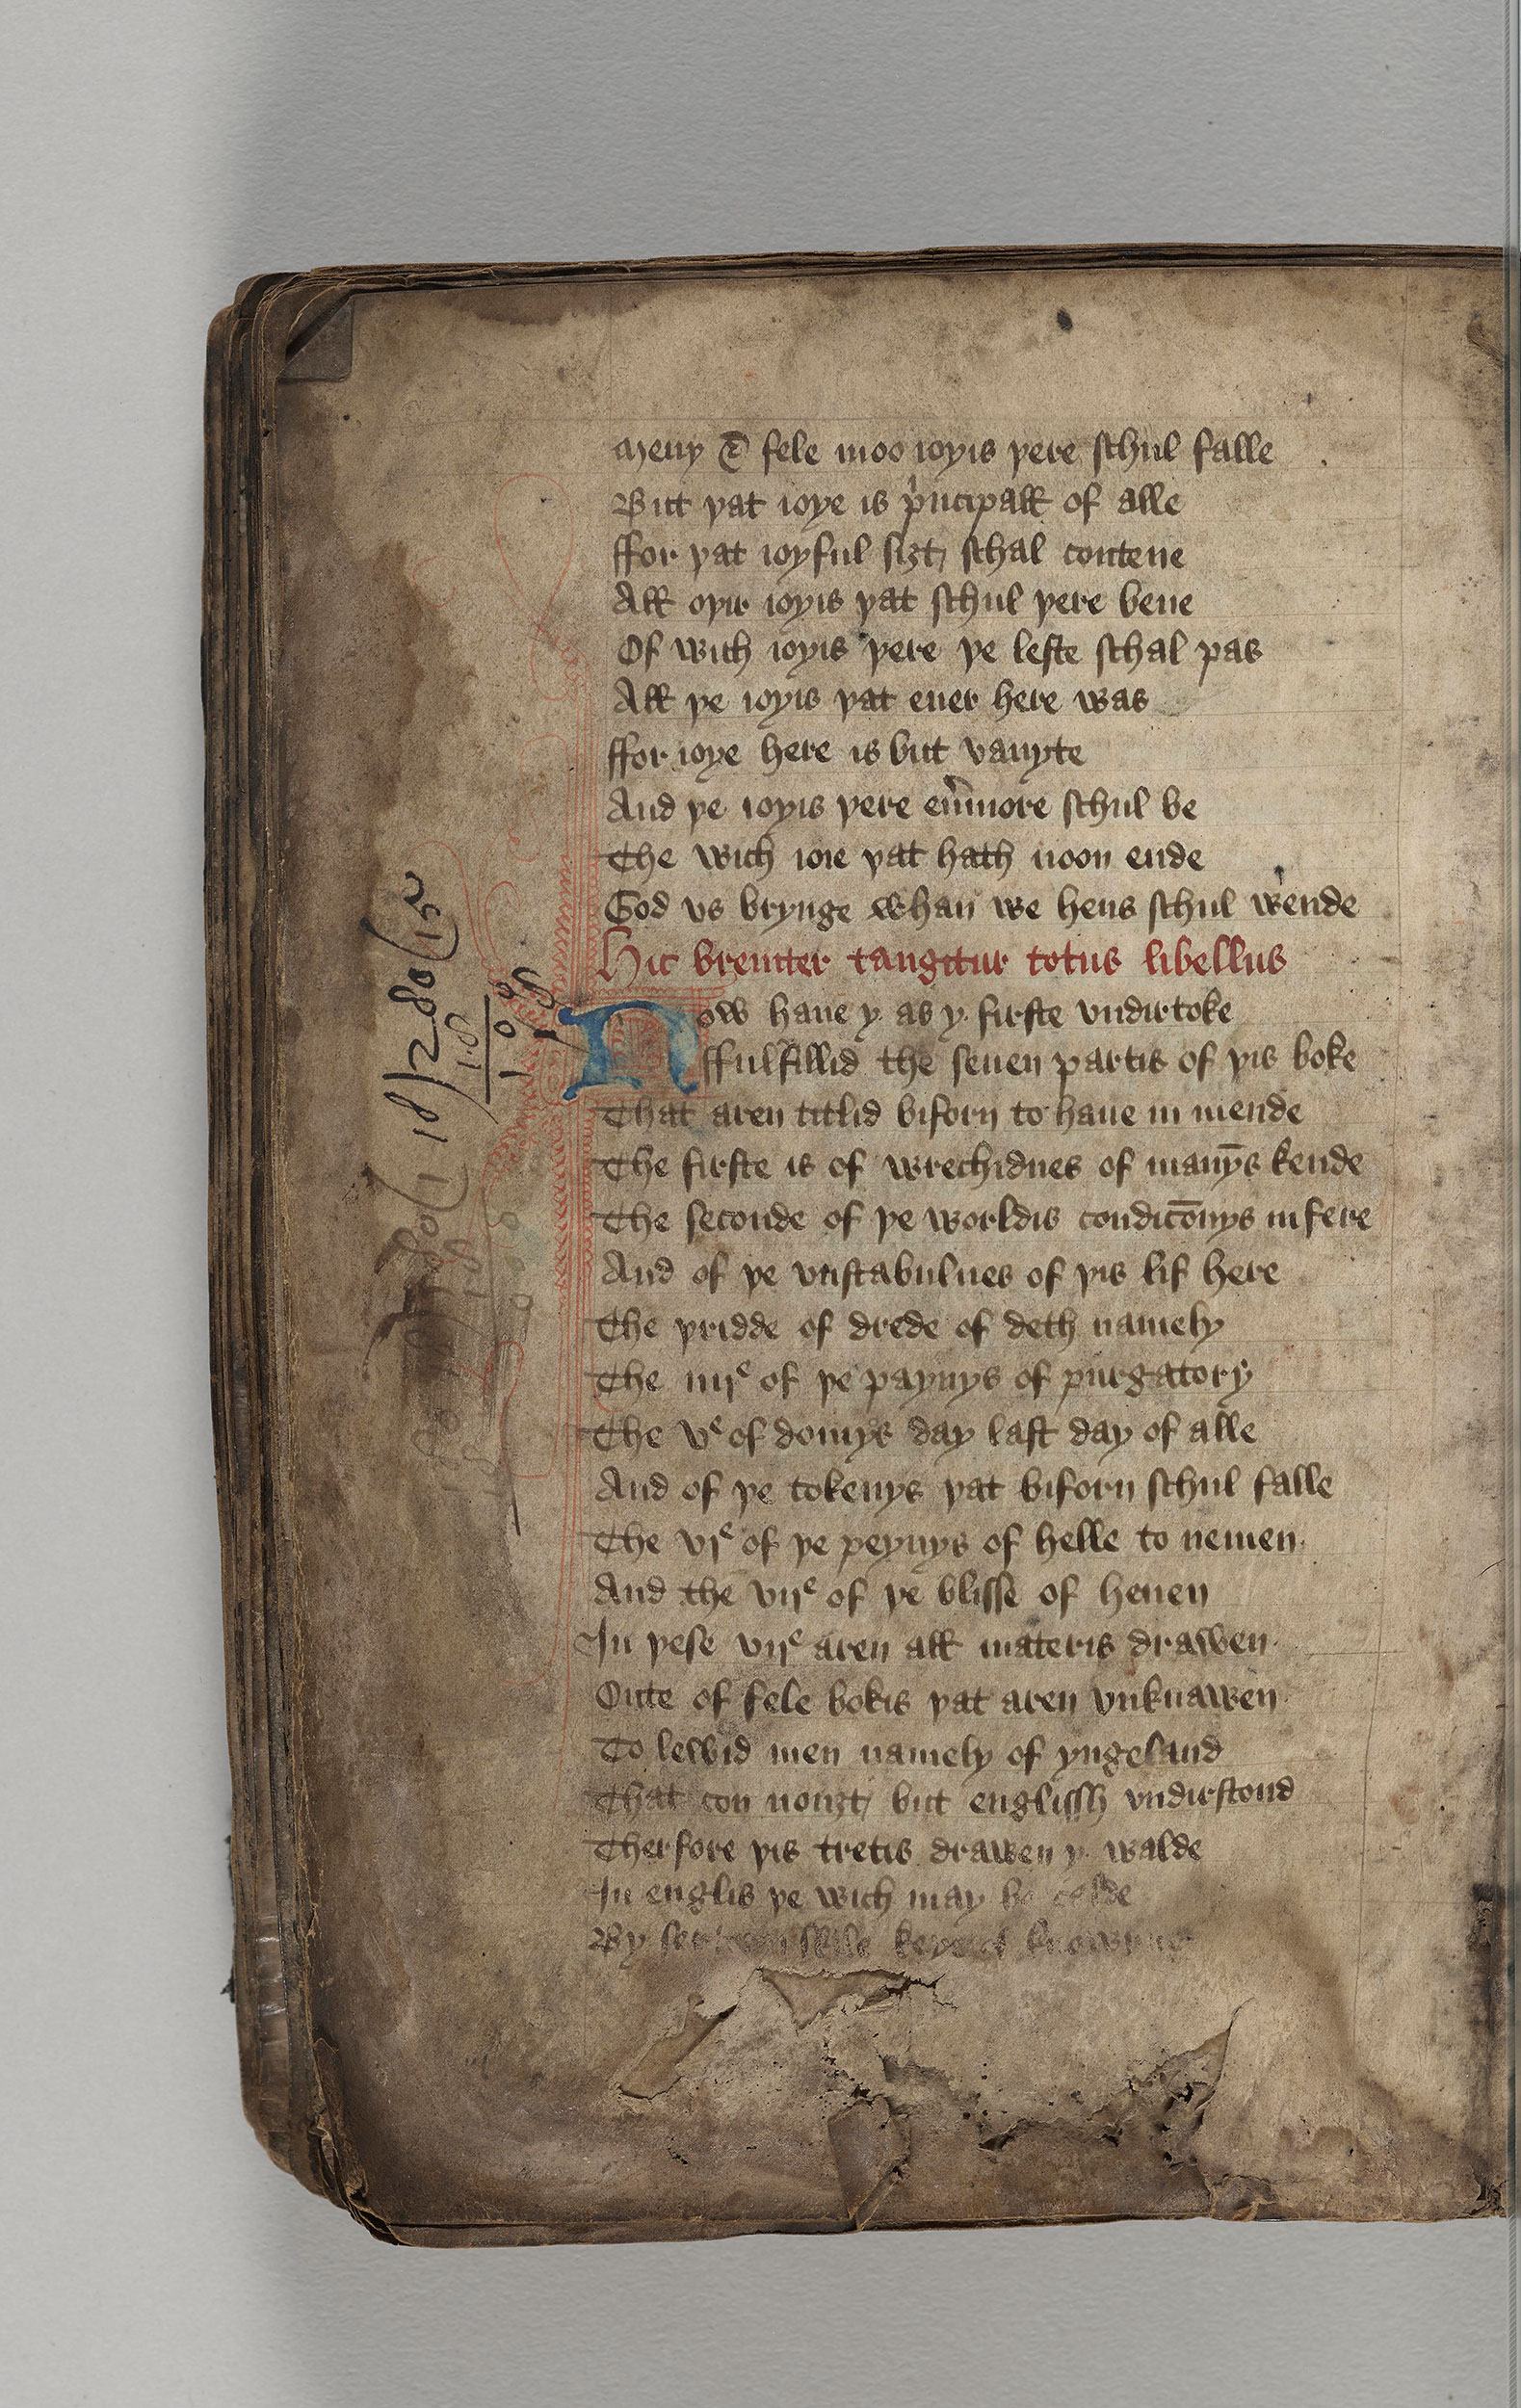 Meny & fele moo ioyis þere schul falle
But þat ioye is pͥncipall of alle
ffor þat ioyful siȝt schal contene
All oþir ioyis þat schul þere bene
Of wich ioyis þere þe leste schal pas
All þe ioyis þat euer here was
ffor ioye here is but vanyte
And þe ioyis þere eu̅more schul be
The wich ioie þat hath noon ende
God vs brynge whan we hens schul wende
Hic breuiter tangitur totus libellus
Now haue y as y firste vndirtoke
ffulfillid the seuen partis of þis boke
That aren titlid biforn to haue in mende
The firste is of wrechidnes of many̅s kende
The seconde of þe worldis condico̅nys in fere
And of þe vnstabulnes of þis lif here
The þridde of drede of deth namely
The iiijᵉ of þe paynys of purgatory
The vᵉ of domys day last day of alle
And of þe tokenys þat biforn schul falle
The vjᵉ of þe peynys of helle to nemen
And the vijᵉ of þe blisse of heuen
In þese vijᵉ aren all materis drawen
Oute of fele bokis þat aren vnknawen
To lewid men namely of yngeland
That con nouȝt but englissh vndirstond
Therfore þis tretis drawen y walde
In englis þe wich may be calde
By
18)280(15
18
100